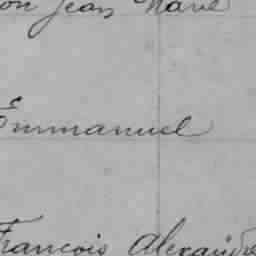 on Jean Marie
Emmanuel
François Alexandre